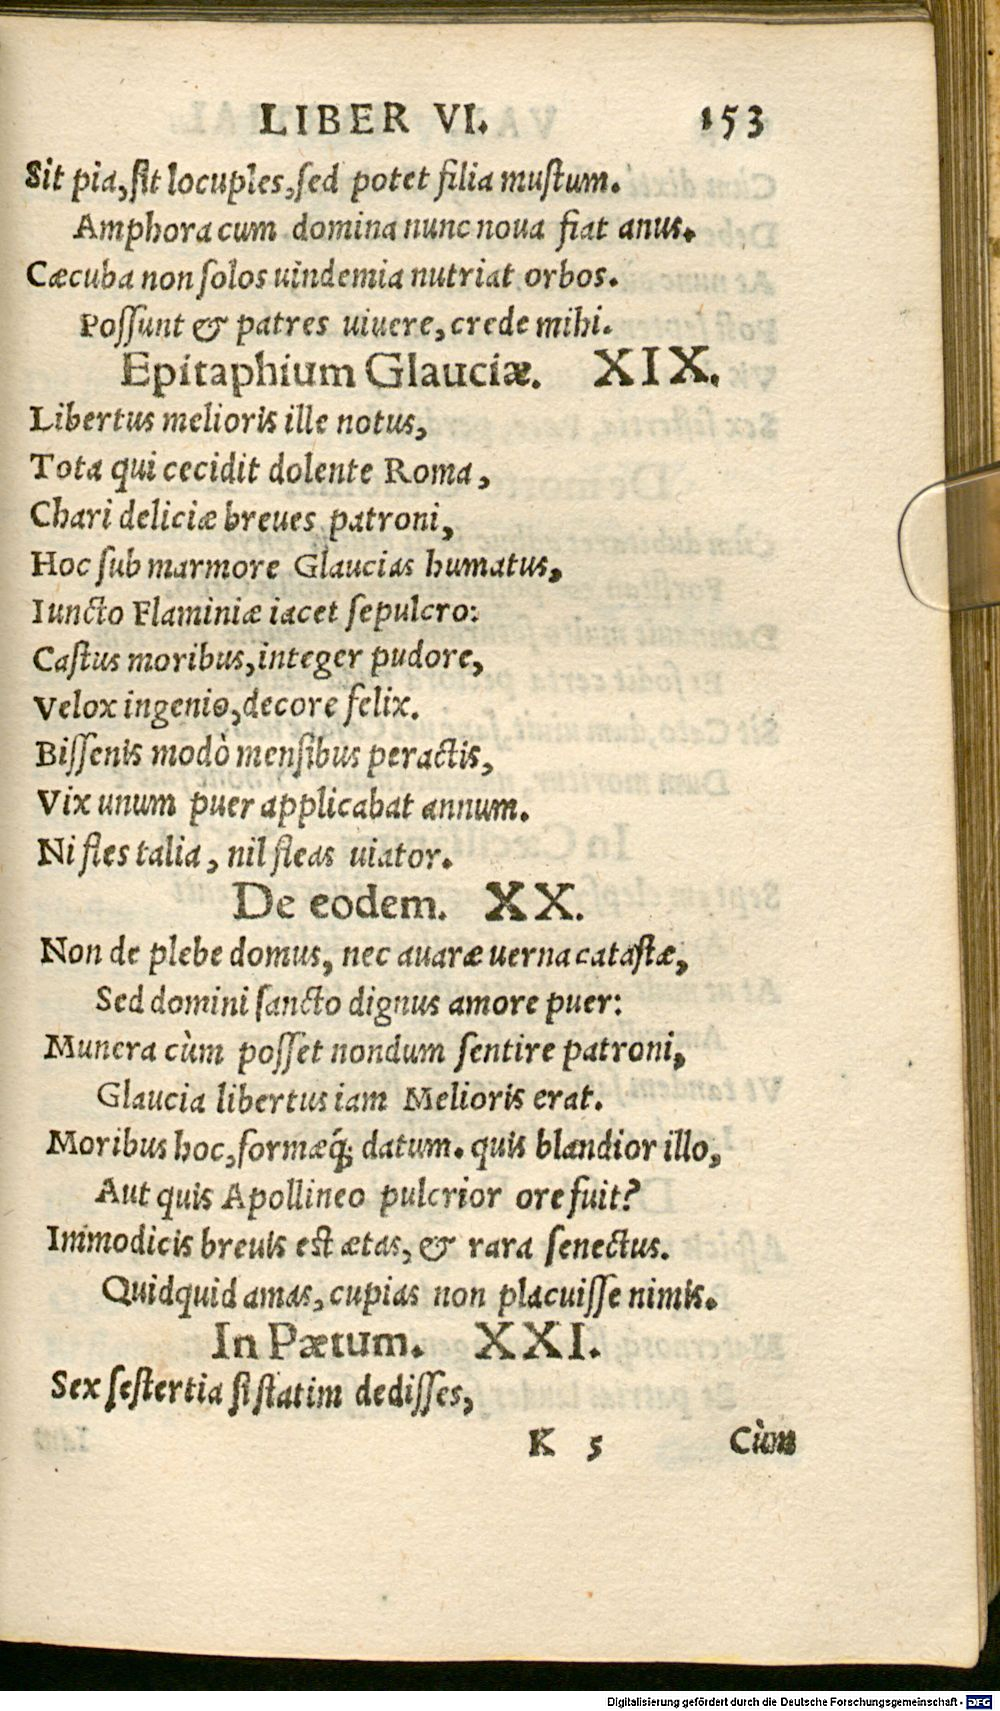 LIBER VI. 153
Sit pia, ſit locuples, ſed potet filia muſtum.
Amphora cum domina nunc noua fiat anus.
Cæcuba non ſolos uindemia nutriat orbos.
Poſſunt & patres uiuere, crede mihi.
Epitaphium Glauciæ. XIX.
Libertus melioris ille notus,
Tota qui cecidit dolente Roma,
Chari deliciæ breues patroni,
Hoc ſub marmore Glaucias humatus,
Iuncto Flaminiæ iacet ſepulcro:
Caſtus moribus, integer pudore,
Velox ingenio, decore felix.
Biſſenis modò menſibus peractis,
Vix unum puer applicabat annum.
Ni fles talia, nil fleas uiator.
De eodem. XX.
Non de plebe domus, nec auaræ uerna cataſtæ,
Sed domini ſancto dignus amore puer:
Munera cùm poſſet nondum ſentire patroni,
Glaucia libertus iam Melioris erat.
Moribus hoc, formæq́; datum. quis blandior illo,
Aut quis Apollineo pulcrior ore fuit?
Immodicis breuis eſt ætas, & rara ſenectus.
Quidquid amas, cupias non placuiſſe nimis.
In Pætum. XXI.
Sex ſeſtertia ſi ſtatim dediſſes,
K 5 Cùm
Digitalisierung gefördert durch die Deutsche Forschungsgemeinschaft - DFG